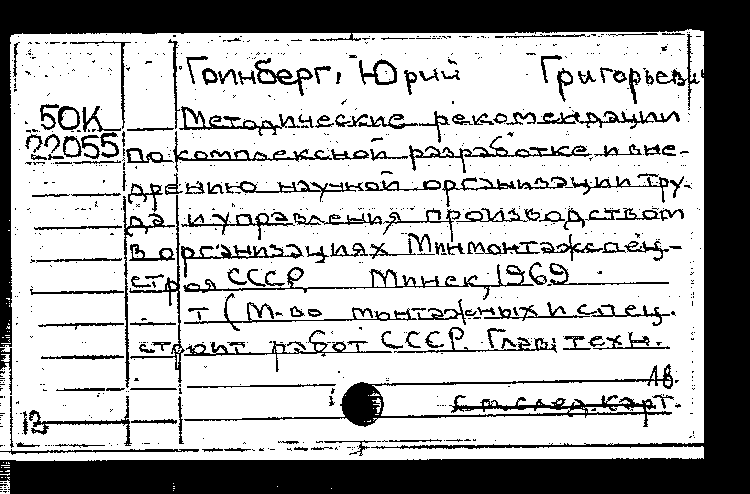 Гринберг, Юрий Григорьевич
50К
22055
Методические рекомендации
по комплексной разработке и вне-
дрению научной организации тру-
да и управления производством
в организациях Минмонтажспец-
строя СССР. Минск, 1969
т (М-во монтажных и спец.
строит работ СССР. Глав. техн.
18
См. след. карт.
12